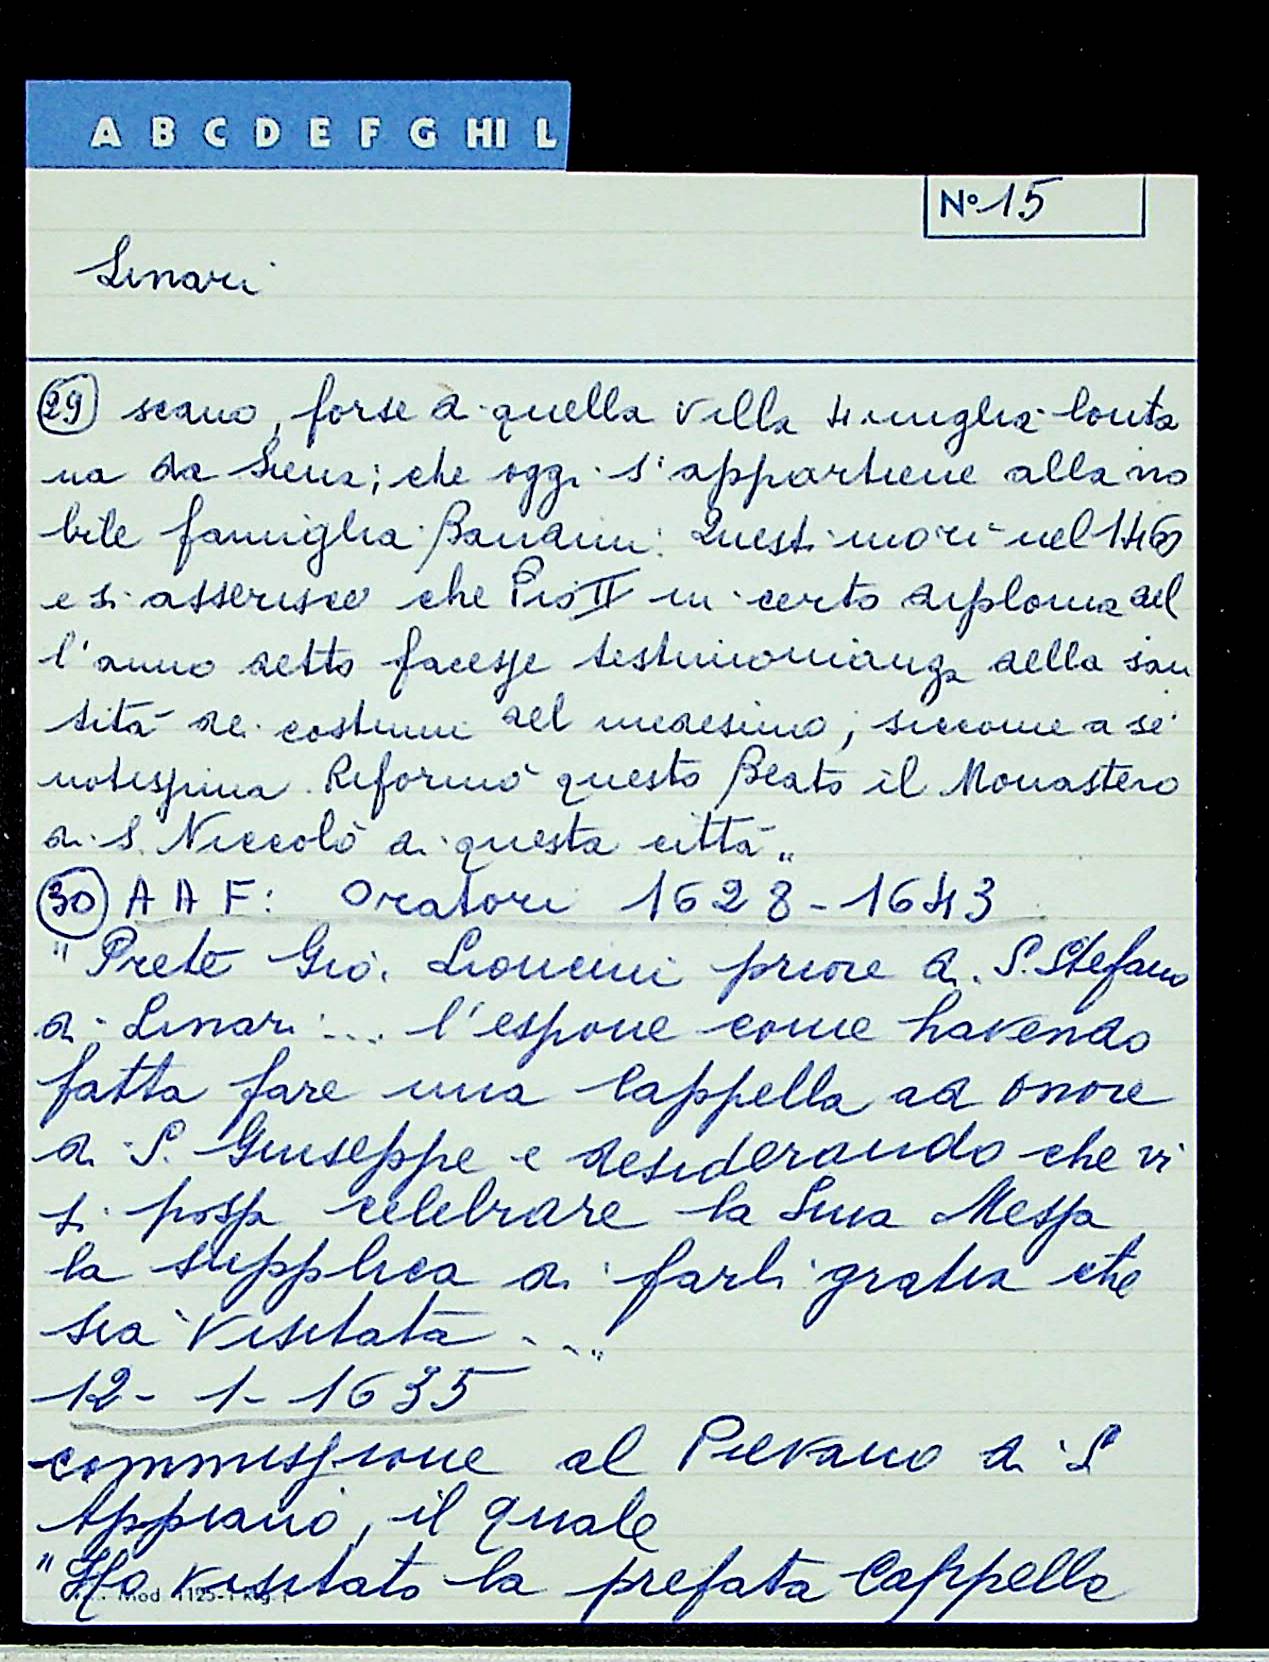 A B C D E F G HI L
N° 15
Linari
29 scano, forse a quella villa 4 miglia lonta
na da Siena; che oggi s'appartiene alla no
bile famiglia Bandini: Questi morì nel 1460
e si asserisce che Pio II in certo diploma del
l'anno detto facesse testimonianza della san
tità dei costumi del medesimo, siccome a sé
notissima. Riformò questo Beato il Monastero
di S. Niccolò di questa città„
30 A A F: Oratori 1628-1643
"Prete Giò. Lioncini priore di S. Stefano
a Linari ... l'espone come havendo
fatta fare una Cappella ad onore
di S. Giuseppe e desiderando che vi
si possa celebrare la Messa
la supplica di farli gratia che
sia visitata ..."
12-1-1635
commissione al Pievano di S
Appiano, il quale
"Ho visitato la prefata Cappella
Mod. 1125-1 Rig. 1